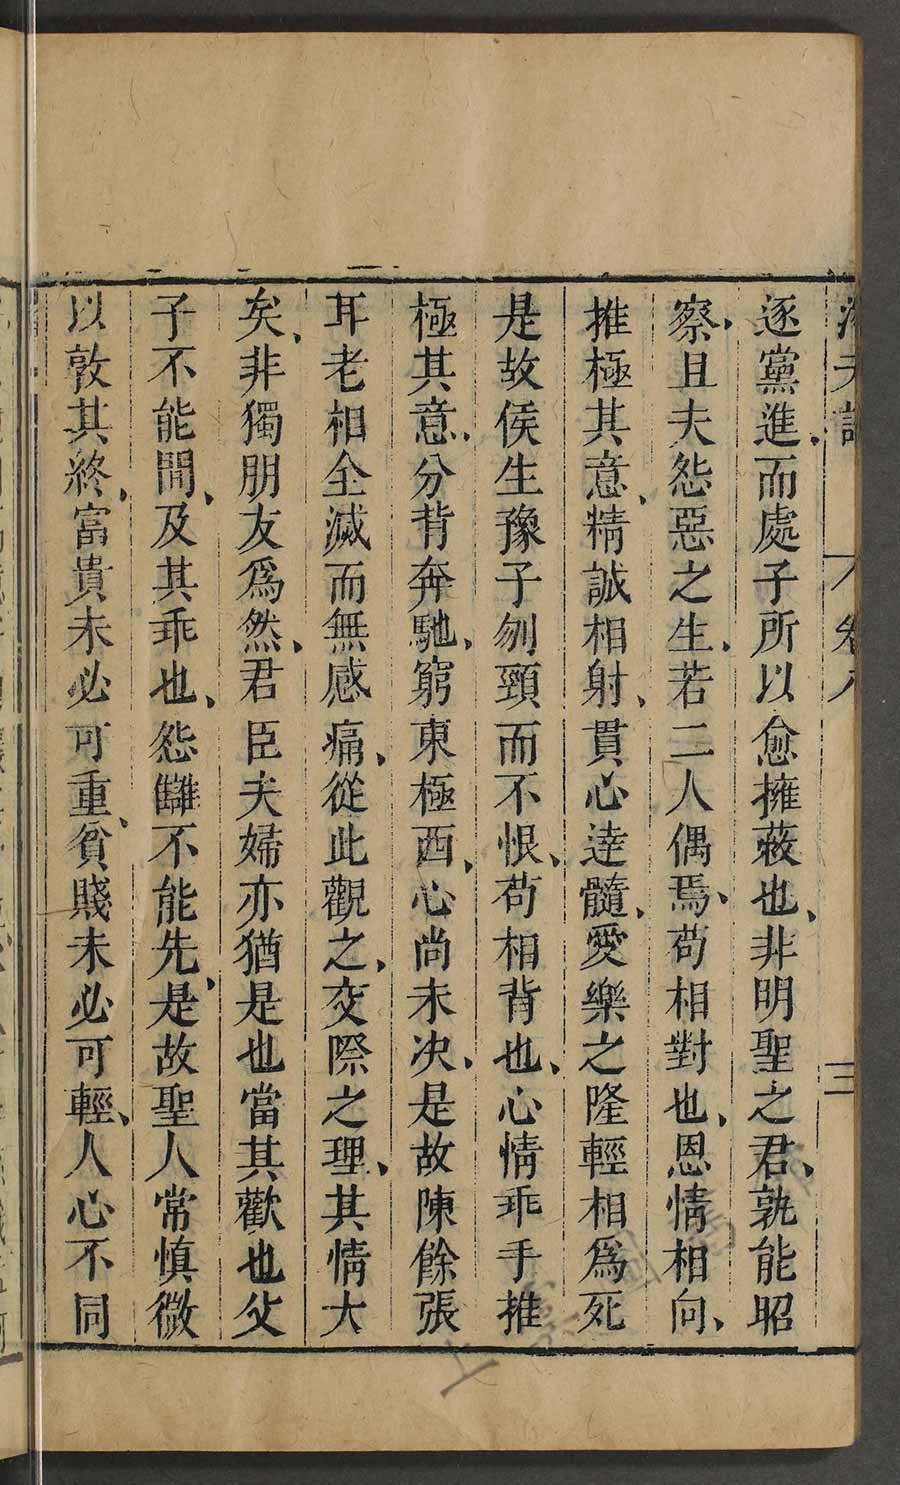 卷八
三
逐黨進、而處子所以愈擁蔽也、非明聖之君、孰能昭
察、且夫怨惡之生、若二人偶焉、苟相對也、恩情相向、
推極其意、精誠相射、貫心達髓、愛樂之隆輕相爲死
是故侯生豫子刎頸而不恨、苟相背也、心情乖乎推
極其意、分背奔馳、窮東極西、心尚未决、是故陳餘張
耳老相全滅而無感痛、從此觀之、交際之理、其情大
矣、非獨朋友爲然、君臣夫婦亦猶是也當其歡也父
子不能間、及其乖也、怨讎不能先、是故聖人常慎微
以敦其終、富貴未必可重、貧賤未必可輕、人心不同